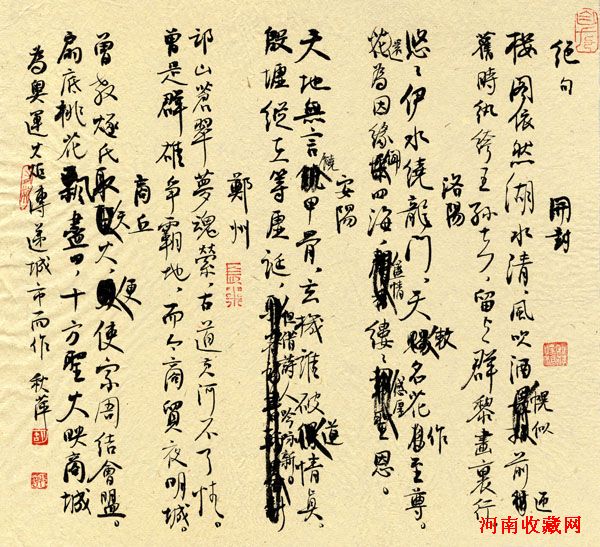 絕句
開封
樓閣依然湖水清，風吹酒幌似前迎
舊時紈絝王孫去，留與群黎畫裏行
洛陽
悠々伊水繞龍門，天教名花作至尊。
還花為因緣聞四海，焦情縷々感厚恩。
安陽
天地無言饒甲骨，玄機誰破道情真。
殷墟從在等塵誕，但借詩人吟咏新。
鄭州
邙山蒼翠夢魂縈，古道黃河不了情。
曾是群雄爭霸地，而今商貿夜明城。
商丘
曾教燧氏取天火，便使宗周結會盟。
扇底桃花飄盡日，十方聖火映商城
為奧運火炬傳遞城市而作 秋萍
河南收藏网